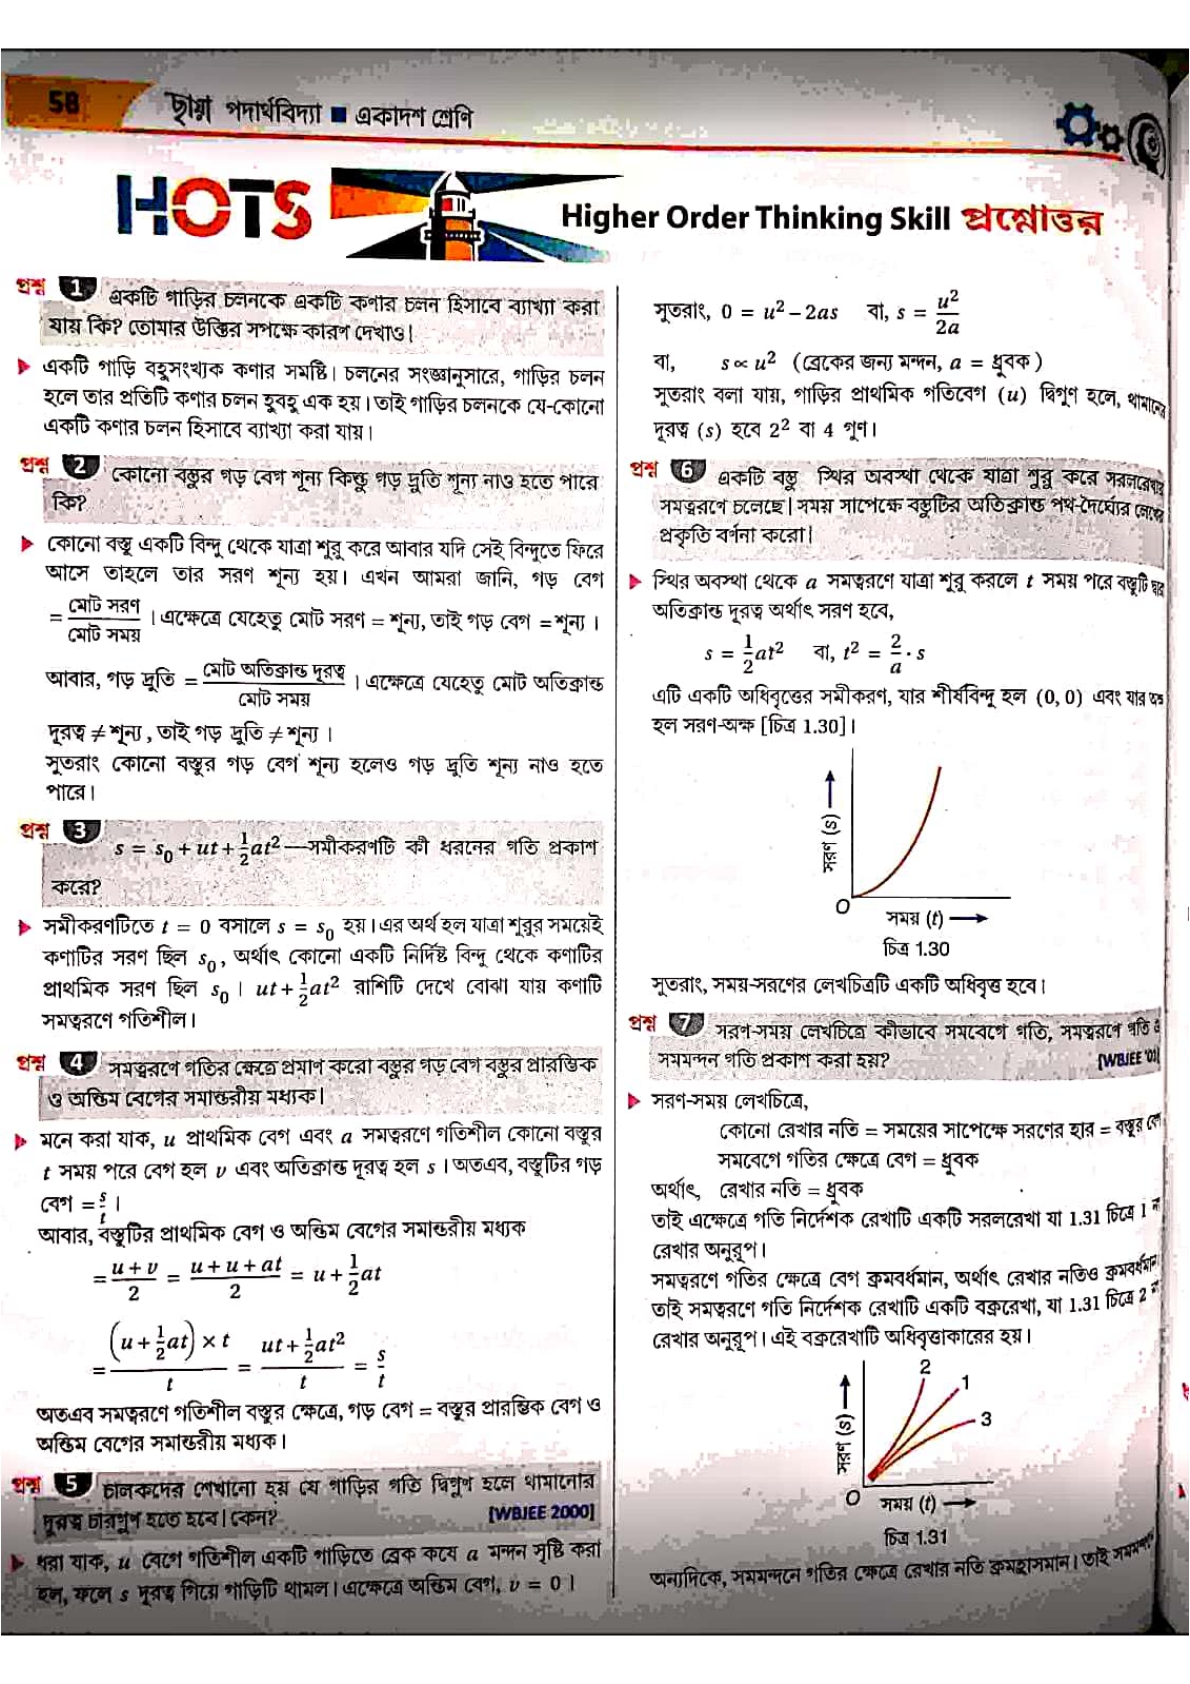 58
ছায়া পদার্থবিদ্যা ■ একাদশ শ্রেণি
HOTS
Higher Order Thinking Skill প্রশ্নোত্তর
প্রশ্ন 1 একটি গাড়ির চলনকে একটি কণার চলন হিসাবে ব্যাখ্যা করা
যায় কি? তোমার উক্তির সপক্ষে কারণ দেখাও।
▶ একটি গাড়ি বহুসংখ্যক কণার সমষ্টি। চলনের সংজ্ঞানুসারে, গাড়ির চলন
হলে তার প্রতিটি কণার চলন হুবহু এক হয়। তাই গাড়ির চলনকে যে-কোনো
একটি কণার চলন হিসাবে ব্যাখ্যা করা যায়।
প্রশ্ন 2 কোনো বস্তুর গড় বেগ শূন্য কিন্তু গড় দ্রুতি শূন্য নাও হতে পারে
কি?
▶ কোনো বস্তু একটি বিন্দু থেকে যাত্রা শুরু করে আবার যদি সেই বিন্দুতে ফিরে
আসে তাহলে তার সরণ শূন্য হয়। এখন আমরা জানি, গড় বেগ
= মোট সরণ / মোট সময় । এক্ষেত্রে যেহেতু মোট সরণ = শূন্য, তাই গড় বেগ = শূন্য ।
আবার, গড় দ্রুতি = মোট অতিক্রান্ত দূরত্ব / মোট সময় । এক্ষেত্রে যেহেতু মোট অতিক্রান্ত
দূরত্ব ≠ শূন্য , তাই গড় দ্রুতি ≠ শূন্য ।
সুতরাং কোনো বস্তুর গড় বেগ শূন্য হলেও গড় দ্রুতি শূন্য নাও হতে
পারে।
প্রশ্ন 3 s = s₀ + ut + ½at² —সমীকরণটি কী ধরনের গতি প্রকাশ
করে?
▶ সমীকরণটিতে t = 0 বসালে s = s₀ হয়। এর অর্থ হল যাত্রা শুরুর সময়েই
কণাটির সরণ ছিল s₀ , অর্থাৎ কোনো একটি নির্দিষ্ট বিন্দু থেকে কণাটির
প্রাথমিক সরণ ছিল s₀ । ut + ½at² রাশিটি দেখে বোঝা যায় কণাটি
সমত্বরণে গতিশীল।
প্রশ্ন 4 সমত্বরণে গতির ক্ষেত্রে প্রমাণ করো বস্তুর গড় বেগ বস্তুর প্রারম্ভিক
ও অন্তিম বেগের সমান্তরীয় মধ্যক।
▶ মনে করা যাক, u প্রাথমিক বেগ এবং a সমত্বরণে গতিশীল কোনো বস্তুর
t সময় পরে বেগ হল v এবং অতিক্রান্ত দূরত্ব হল s । অতএব, বস্তুটির গড়
বেগ = s/t ।
আবার, বস্তুটির প্রাথমিক বেগ ও অন্তিম বেগের সমান্তরীয় মধ্যক
= (u + v)/2 = (u + u + at)/2 = u + ½at
= (u + ½at) × t / t = (ut + ½at²)/t = s/t
অতএব সমত্বরণে গতিশীল বস্তুর ক্ষেত্রে, গড় বেগ = বস্তুর প্রারম্ভিক বেগ ও
অন্তিম বেগের সমান্তরীয় মধ্যক।
প্রশ্ন 5 চালকদের শেখানো হয় যে গাড়ির গতি দ্বিগুণ হলে থামানোর
দূরত্ব চারগুণ হতে হবে। কেন? [WBJEE 2000]
▶ ধরা যাক, u বেগে গতিশীল একটি গাড়িতে ব্রেক কষে a মন্দন সৃষ্টি করা
হল, ফলে s দূরত্ব গিয়ে গাড়িটি থামল। এক্ষেত্রে অন্তিম বেগ, v = 0 ।
সুতরাং, 0 = u² – 2as বা, s = u²/2a
বা, s ∝ u² (ব্রেকের জন্য মন্দন, a = ধ্রুবক )
সুতরাং বলা যায়, গাড়ির প্রাথমিক গতিবেগ (u) দ্বিগুণ হলে, থামানোর
দূরত্ব (s) হবে 2² বা 4 গুণ।
প্রশ্ন 6 একটি বস্তু স্থির অবস্থা থেকে যাত্রা শুরু করে সরলরেখায়
সমত্বরণে চলেছে। সময় সাপেক্ষে বস্তুটির অতিক্রান্ত পথ-দৈর্ঘ্যের লেখের
প্রকৃতি বর্ণনা করো।
▶ স্থির অবস্থা থেকে a সমত্বরণে যাত্রা শুরু করলে t সময় পরে বস্তুটি দ্বারা
অতিক্রান্ত দূরত্ব অর্থাৎ সরণ হবে,
s = ½at² বা, t² = 2/a · s
এটি একটি অধিবৃত্তের সমীকরণ, যার শীর্ষবিন্দু হল (0, 0) এবং যার অক্ষ
হল সরণ-অক্ষ [চিত্র 1.30]।
সরণ (s) ⟶
O
সময় (t) ⟶
চিত্র 1.30
সুতরাং, সময়-সরণের লেখচিত্রটি একটি অধিবৃত্ত হবে।
প্রশ্ন 7 সরণ-সময় লেখচিত্রে কীভাবে সমবেগে গতি, সমত্বরণে গতি ও
সমমন্দন গতি প্রকাশ করা হয়? [WBJEE '01]
▶ সরণ-সময় লেখচিত্রে,
কোনো রেখার নতি = সময়ের সাপেক্ষে সরণের হার = বস্তুর
সমবেগে গতির ক্ষেত্রে বেগ = ধ্রুবক
অর্থাৎ, রেখার নতি = ধ্রুবক
তাই এক্ষেত্রে গতি নির্দেশক রেখাটি একটি সরলরেখা যা 1.31 চিত্রে 1 নং
রেখার অনুরূপ।
সমত্বরণে গতির ক্ষেত্রে বেগ ক্রমবর্ধমান, অর্থাৎ রেখার নতিও ক্রমবর্ধমান
তাই সমত্বরণে গতি নির্দেশক রেখাটি একটি বক্ররেখা, যা 1.31 চিত্রে 2 নং
রেখার অনুরূপ। এই বক্ররেখাটি অধিবৃত্তাকারের হয়।
2
1
3
সরণ (s) ⟶
O
সময় (t) ⟶
চিত্র 1.31
অন্যদিকে, সমমন্দনে গতির ক্ষেত্রে রেখার নতি ক্রমহ্রাসমান। তাই